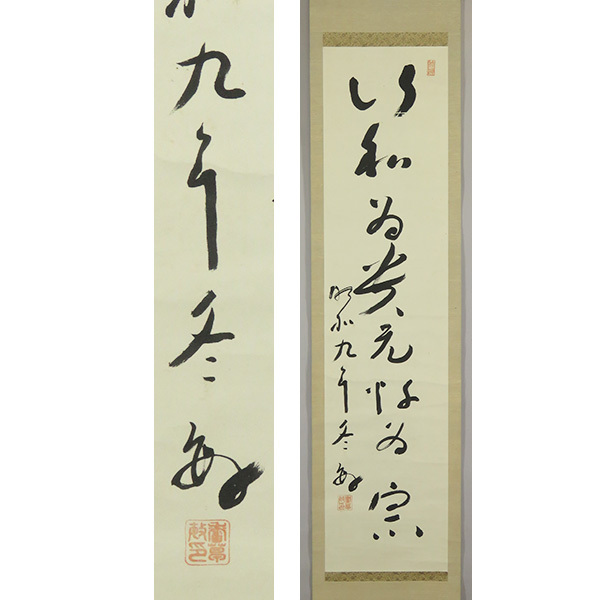 九年冬 敏
以和為貴無忤為宗
昭和九年冬 敏